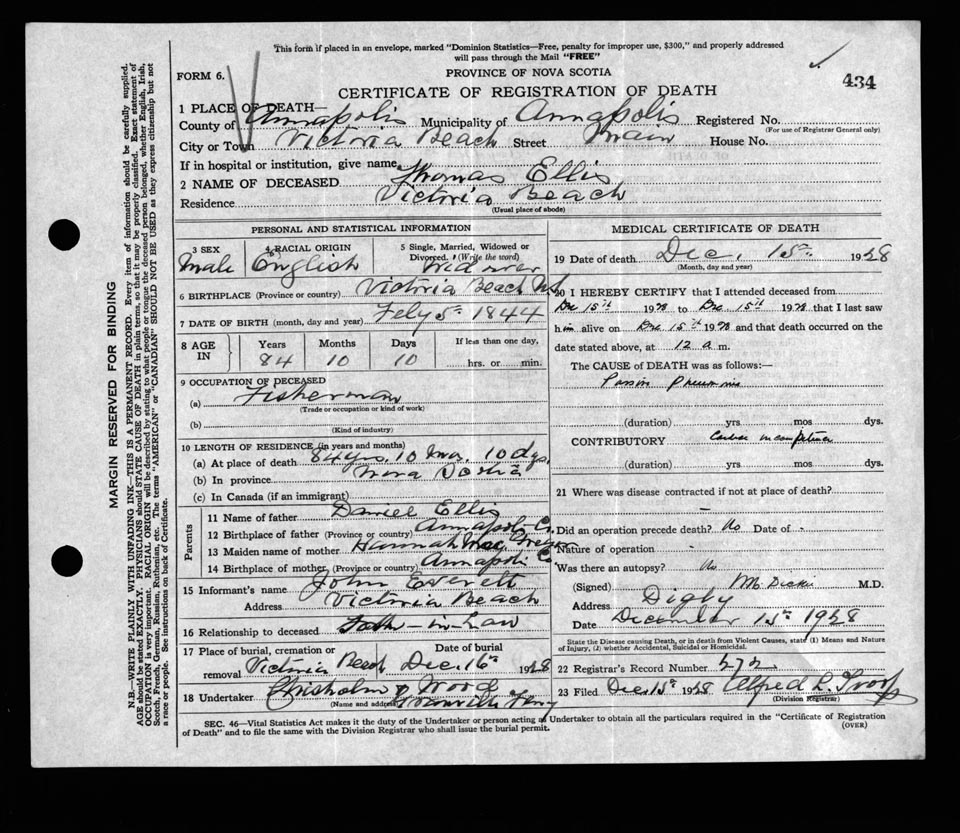 This form if placed in an envelope, marked "Dominion Statistics—Free, penalty for improper use, $300," and properly addressed
will pass through the Mail "FREE"
FORM 6.
PROVINCE OF NOVA SCOTIA
434
CERTIFICATE OF REGISTRATION OF DEATH
1 PLACE OF DEATH—
County of Annapolis Municipality of Annapolis Registered No.
(For use of Registrar General only)
City or Town Victoria Beach Street Main House No.
If in hospital or institution, give name
2 NAME OF DECEASED Thomas Ellis
Residence Victoria Beach
(Usual place of abode)
PERSONAL AND STATISTICAL INFORMATION
3 SEX 4 RACIAL ORIGIN 5 Single, Married, Widowed or
Divorced. (Write the word)
Male English Widower
6 BIRTHPLACE (Province or country) Victoria Beach N.S.
7 DATE OF BIRTH (month, day and year) Feby 5th 1844
8 AGE IN Years Months Days If less than one day,
84 10 10 hrs. or min.
9 OCCUPATION OF DECEASED
(a) Fisherman
(Trade or occupation or kind of work)
(b)
(Kind of industry)
10 LENGTH OF RESIDENCE (in years and months)
(a) At place of death 84 yrs. 10 Mos. 10 dys.
(b) In province Nova Scotia
(c) In Canada (if an immigrant)
Parents
11 Name of father Daniel Ellis
12 Birthplace of father (Province or country) Annapolis Co.
13 Maiden name of mother Hannah
14 Birthplace of mother (Province or country) Annapolis C
15 Informant's name John Everett
Address Victoria Beach
16 Relationship to deceased -in-Law
17 Place of burial, cremation or removal Victoria Beach Date of burial Dec. 16th 1928
18 Undertaker Chisholm & Wood
(Name and address) Granville Ferry
MEDICAL CERTIFICATE OF DEATH
19 Date of death Dec. 15th 1928
(Month, day and year)
20 I HEREBY CERTIFY that I attended deceased from
Dec 15th 1928 to Dec 15th 1928 that I last saw
him alive on Dec 15th 1928 and that death occurred on
date stated above, at 12 a m.
The CAUSE of DEATH was as follows:—
(duration) yrs mos dys.
CONTRIBUTORY
(duration) yrs mos dys.
21 Where was disease contracted if not at place of death?
Did an operation precede death? No Date of -
Nature of operation -
Was there an autopsy? No
(Signed) M.D.
Address Digby
Date December 15th 1928
State the Disease causing Death, or in death from Violent Causes, state (1) Means and Nature
of Injury, (2) whether Accidental, Suicidal or Homicidal.
22 Registrar's Record Number
23 Filed Dec 15th 1928 Alfred L.
(Division Registrar)
SEC. 46—Vital Statistics Act makes it the duty of the Undertaker or person acting as Undertaker to obtain all the particulars required in the "Certificate of Registration
of Death" and to file the same with the Division Registrar who shall issue the burial permit.
(OVER)
MARGIN RESERVED FOR BINDING
N.B.—WRITE PLAINLY WITH UNFADING INK—THIS IS A PERMANENT RECORD. Every item of information should be carefully supplied.
AGE should be stated EXACTLY. PHYSICIANS should STATE CAUSE OF DEATH in plain terms, so that it may be properly classified. Exact statement of
OCCUPATION is very important. RACIAL ORIGIN will be described by stating to what people or tongue the deceased person belonged, whether English, Irish,
Scotch, French, German, Russian, Ruthenian, etc. The terms "AMERICAN" or "CANADIAN" SHOULD NOT BE USED as they express citizenship but not
a race or people. See instructions on back of Certificate.